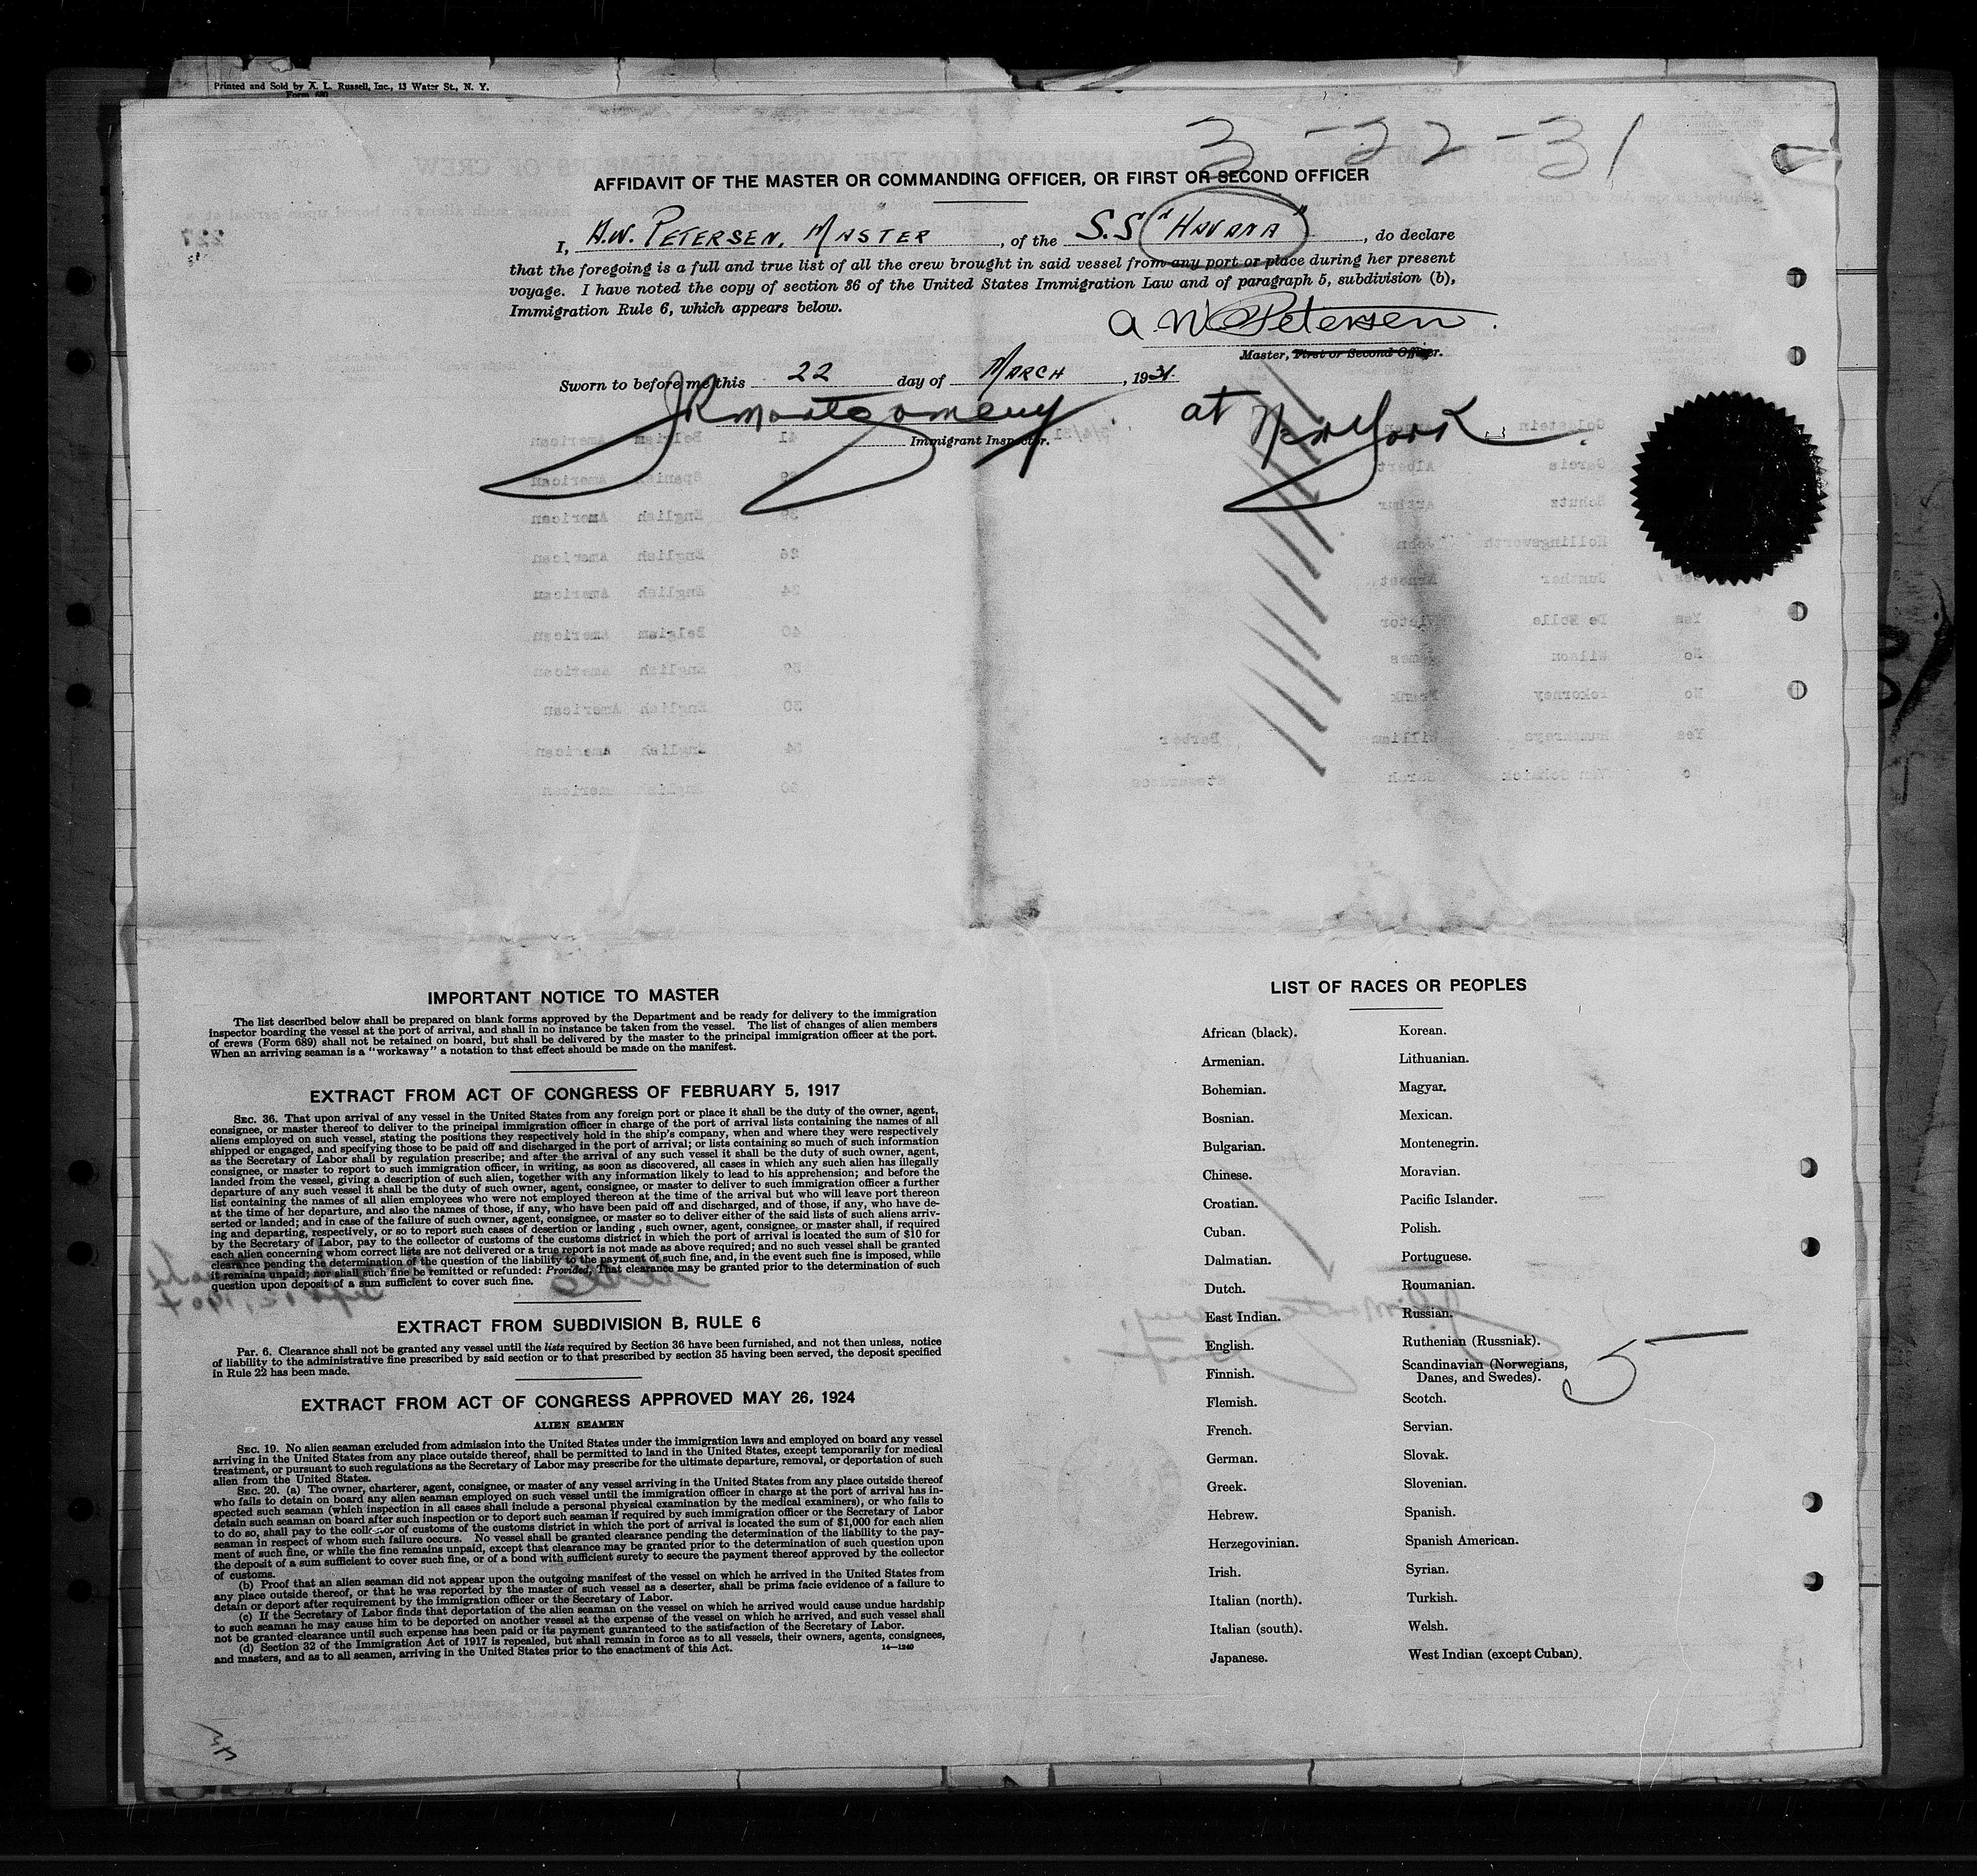 Printed and Sold by A. L. Russell, Inc., 13 Water St., N. Y.
Form 680
3-22-31
AFFIDAVIT OF THE MASTER OR COMMANDING OFFICER, OR FIRST OR SECOND OFFICER
I, A.W. PETERSEN, MASTER, of the S.S "HAVANA", do declare
that the foregoing is a full and true list of all the crew brought in said vessel from any port or place during her present
voyage. I have noted the copy of section 36 of the United States Immigration Law and of paragraph 5, subdivision (b),
Immigration Rule 6, which appears below.
A W Petersen.
Master, First or Second Officer.
Sworn to before me this 22 day of MARCH, 1931.
JR Montgomery. at New York.
Immigrant Inspector.
IMPORTANT NOTICE TO MASTER
The list described below shall be prepared on blank forms approved by the Department and be ready for delivery to the immigration
inspector boarding the vessel at the port of arrival, and shall in no instance be taken from the vessel. The list of changes of alien members
of crews (Form 689) shall not be retained on board, but shall be delivered by the master to the principal immigration officer at the port.
When an arriving seaman is a "workaway" a notation to that effect should be made on the manifest.
EXTRACT FROM ACT OF CONGRESS OF FEBRUARY 5, 1917
SEC. 36. That upon arrival of any vessel in the United States from any foreign port or place it shall be the duty of the owner, agent,
consignee, or master thereof to deliver to the principal immigration officer in charge of the port of arrival lists containing the names of all
aliens employed on such vessel, stating the positions they respectively hold in the ship's company, when and where they were respectively
shipped or engaged, and specifying those to be paid off and discharged in the port of arrival; or lists containing so much of such information
as the Secretary of Labor shall by regulation prescribe; and after the arrival of any such vessel it shall be the duty of such owner, agent,
consignee, or master to report to such immigration officer, in writing, as soon as discovered, all cases in which any such alien has illegally
landed from the vessel, giving a description of such alien, together with any information likely to lead to his apprehension; and before the
departure of any such vessel it shall be the duty of such owner, agent, consignee, or master to deliver to such immigration officer a further
list containing the names of all alien employees who were not employed thereon at the time of the arrival but who will leave port thereon
at the time of her departure, and also the names of those, if any, who have been paid off and discharged, and of those, if any, who have de-
serted or landed; and in case of the failure of such owner, agent, consignee, or master so to deliver either of the said lists of such aliens arriv-
ing and departing, respectively, or so to report such cases of desertion or landing, such owner, agent, consignee, or master shall, if required
by the Secretary of Labor, pay to the collector of customs of the customs district in which the port of arrival is located the sum of $10 for
each alien concerning whom correct lists are not delivered or a true report is not made as above required; and no such vessel shall be granted
clearance pending the determination of the question of the liability to the payment of such fine, and, in the event such fine is imposed, while
it remains unpaid; nor shall such fine be remitted or refunded: Provided, That clearance may be granted prior to the determination of such
question upon deposit of a sum sufficient to cover such fine.
EXTRACT FROM SUBDIVISION B, RULE 6
Par. 6. Clearance shall not be granted any vessel until the lists required by Section 36 have been furnished, and not then unless, notice
of liability to the administrative fine prescribed by said section or to that prescribed by section 35 having been served, the deposit specified
in Rule 22 has been made.
EXTRACT FROM ACT OF CONGRESS APPROVED MAY 26, 1924
ALIEN SEAMEN
SEC. 19. No alien seaman excluded from admission into the United States under the immigration laws and employed on board any vessel
arriving in the United States from any place outside thereof, shall be permitted to land in the United States, except temporarily for medical
treatment, or pursuant to such regulations as the Secretary of Labor may prescribe for the ultimate departure, removal, or deportation of such
alien from the United States.
SEC. 20. (a) The owner, charterer, agent, consignee, or master of any vessel arriving in the United States from any place outside thereof
who fails to detain on board any alien seaman employed on such vessel until the immigration officer in charge at the port of arrival has in-
spected such seaman (which inspection in all cases shall include a personal physical examination by the medical examiners), or who fails to
detain such seaman on board after such inspection or to deport such seaman if required by such immigration officer or the Secretary of Labor
to do so, shall pay to the collector of customs of the customs district in which the port of arrival is located the sum of $1,000 for each alien
seaman in respect of whom such failure occurs. No vessel shall be granted clearance pending the determination of the liability to the pay-
ment of such fine, or while the fine remains unpaid, except that clearance may be granted prior to the determination of such question upon
the deposit of a sum sufficient to cover such fine, or of a bond with sufficient surety to secure the payment thereof approved by the collector
of customs.
(b) Proof that an alien seaman did not appear upon the outgoing manifest of the vessel on which he arrived in the United States from
any place outside thereof, or that he was reported by the master of such vessel as a deserter, shall be prima facie evidence of a failure to
detain or deport after requirement by the immigration officer or the Secretary of Labor.
(c) If the Secretary of Labor finds that deportation of the alien seaman on the vessel on which he arrived would cause undue hardship
to such seaman he may cause him to be deported on another vessel at the expense of the vessel on which he arrived, and such vessel shall
not be granted clearance until such expense has been paid or its payment guaranteed to the satisfaction of the Secretary of Labor.
(d) Section 32 of the Immigration Act of 1917 is repealed, but shall remain in force as to all vessels, their owners, agents, consignees,
and masters, and as to all seamen, arriving in the United States prior to the enactment of this Act. 14—1240
LIST OF RACES OR PEOPLES
African (black).
Armenian.
Bohemian.
Bosnian.
Bulgarian.
Chinese.
Croatian.
Cuban.
Dalmatian.
Dutch.
East Indian.
English.
Finnish.
Flemish.
French.
German.
Greek.
Hebrew.
Herzegovinian.
Irish.
Italian (north).
Italian (south).
Japanese.
Korean.
Lithuanian.
Magyar.
Mexican.
Montenegrin.
Moravian.
Pacific Islander.
Polish.
Portuguese.
Roumanian.
Russian.
Ruthenian (Russniak).
Scandinavian (Norwegians,
Danes, and Swedes).
Scotch.
Servian.
Slovak.
Slovenian.
Spanish.
Spanish American.
Syrian.
Turkish.
Welsh.
West Indian (except Cuban).
5